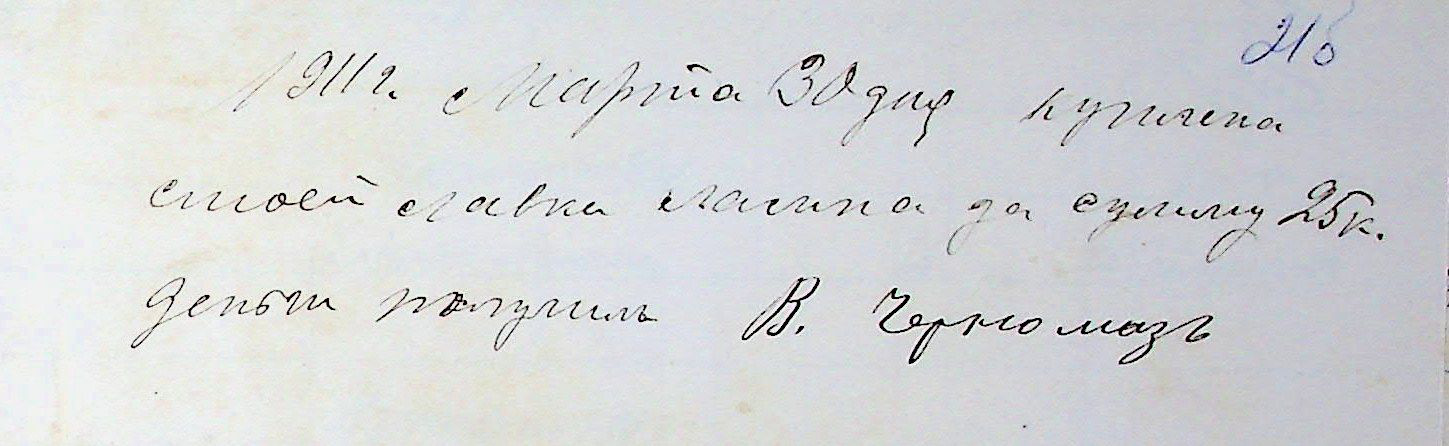 215
1911 г. Марта 30 дня купчена
смоей лавки ласина да сумму 25 к.
деньги получилъ В. Черномазъ